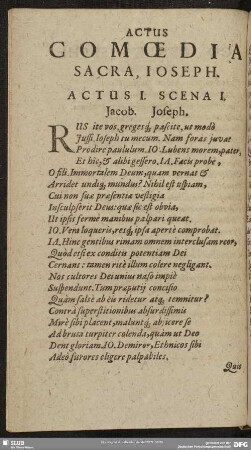 ACTUS
COMŒDIA
SACRA, IOSEPH.
ACTUS I. SCENA I.
Jacob. Joseph.
RUS ite vos, gregesq́; pascite, ut modò
Jussi. Ioseph tu mecum. Nam foras juvat
Prodire paululum. IO. Lubens morem, pater,
Et hîc, & alibi gessero. IA. Facis probè,
O fili. Immortalem Deum, quam vernat &
Arridet undiq́; mundus! Nihil est uspiam,
Cui non suæ præsentia vestigia
Insculpserit Deus: quæ sic est obvia,
Ut ipsi fermè manibus palpari queat.
IO. Vera loqueris, resq́; ipsa apertè comprobat.
IA. Hinc gentibus rimam omnem interclusam reor,
Quòd etsi ex conditis potentiam Dei
Cernant: tamen ritè illum colere negligant.
Nos cultores Dei unius naso impiè
Suspendunt. Tum præputj concisio
Quàm salsè ab eis ridetur atq; temnitur?
Contrà superstitionibus absurdissimis
Mirè sibi placent, maluntq́; abjicere se
Ad bruta turpiter colenda, quàm ut Deo
Dent gloriam. IO. Demiror, Ethnicos sibi
Adeò furores eligere palpabiles.
Quis
SLUB